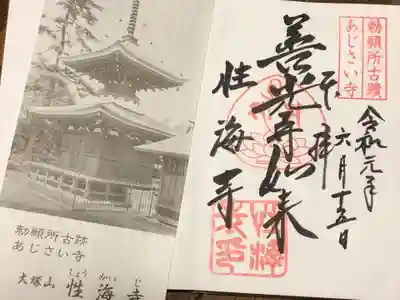 勅願所古蹟
あじさい寺
令和元年
六月十五日
奉拝
善光寺如来
性海寺
勅願所古跡
あじさい寺
しょう かい じ
大塚山 性海寺